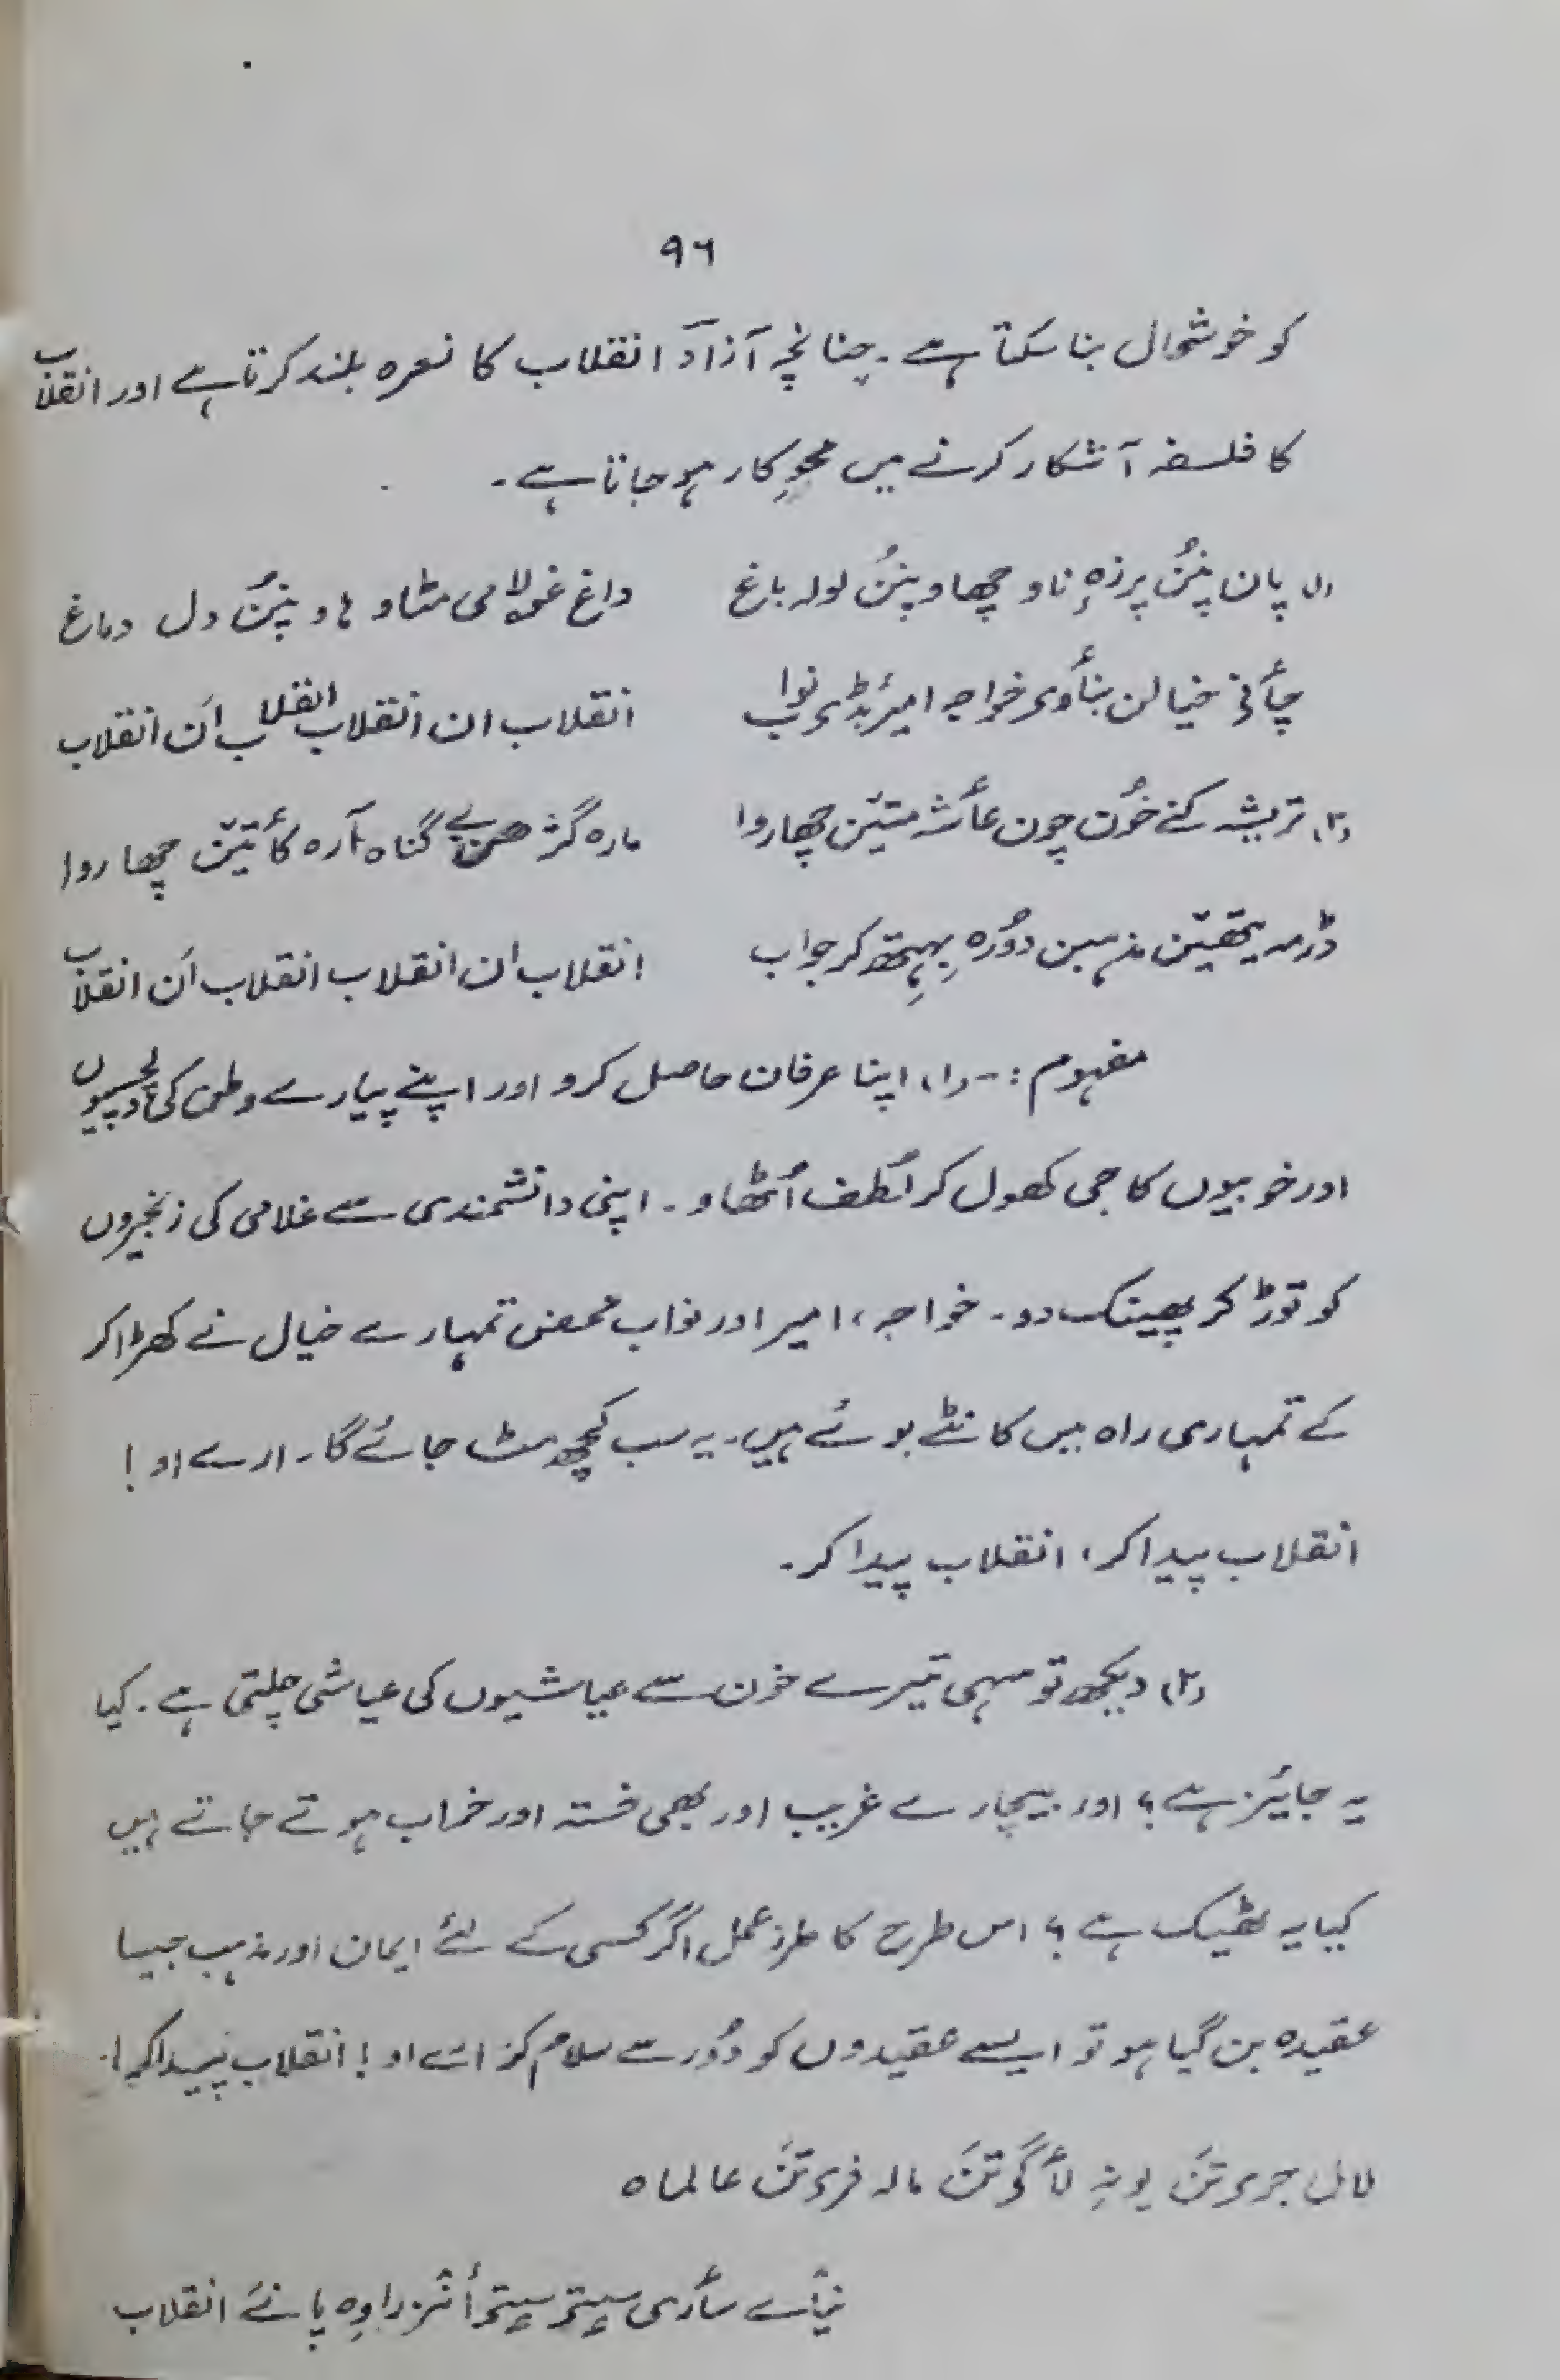 ۹۶
کو خوشحال بنا سکتا ہے۔ چنانچہ آزاد انقلاب کا نعرہ بلند کرتا ہے اور انقلاب
کا فلسفہ آشکار کرنے میں محوِ کار ہو جاتا ہے۔
(۱) پان پنُن پرزہ ناو چھاو پنُن لولہ باغ داغ غولامی مٹاو ہاو پنُن دل دماغ
چأنی خیالن بنأوی خواجہ امیر بڈی نواب انقلاب ان انقلاب انقلاب اَن انقلاب
(۲) تریشہ کنے خوُن چون عأشہ متیٚن چھا روا مارہ گژھن بے گناہ نارہ کأتیٚن چھا روا
مذہبن دوٗرہ کر جواب انقلاب ان انقلاب انقلاب اَن انقلاب
مفہوم :- (۱) اپنا عرفان حاصل کرو اور اپنے پیارے وطن کی دلچسپیوں
اور خوبیوں کا جی کھول کر لُطف اُٹھاو۔ اپنی دانشمندی سے غلامی کی زنجیروں
کو توڑ کر پھینک دو۔ خواجہ، امیر اور نواب محض تمہارے خیال نے کھڑا کر
کے تمہاری راہ میں کانٹے بوئے ہیں۔ یہ سب کچھ مٹ جائے گا۔ ارے او !
انقلاب پیدا کر، انقلاب پیدا کر۔
(۲) دیکھ تو سہی تیرے خون سے عیاشیوں کی عیاشی چلتی ہے۔ کیا
یہ جائیز ہے؟ اور بیچارے غریب اور بھی خستہ اور خراب ہوتے جاتے ہیں
کیا یہ ٹھیک ہے؟ اس طرح کا طرز عمل اگر کسی کے لئے ایمان اور مذہب جیسا
عقیدہ بن گیا ہو تو ایسے عقیدوں کو دُور سے سلام کر اے او! انقلاب پیدا کر!
جری تَن لأگی تَن مالہ فری تَن عالماہ
سأری پانے انقلاب